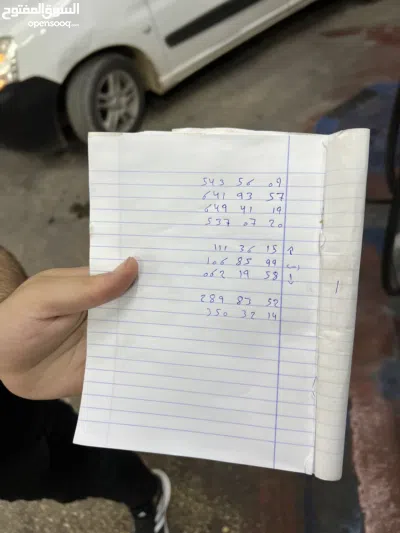 السوق المفتوح
opensooq.com
543 56 09
641 93 57
649 41 19
537 07 20
111 36 15
106 85 99
062 19 58
289 83 32
350 32 14